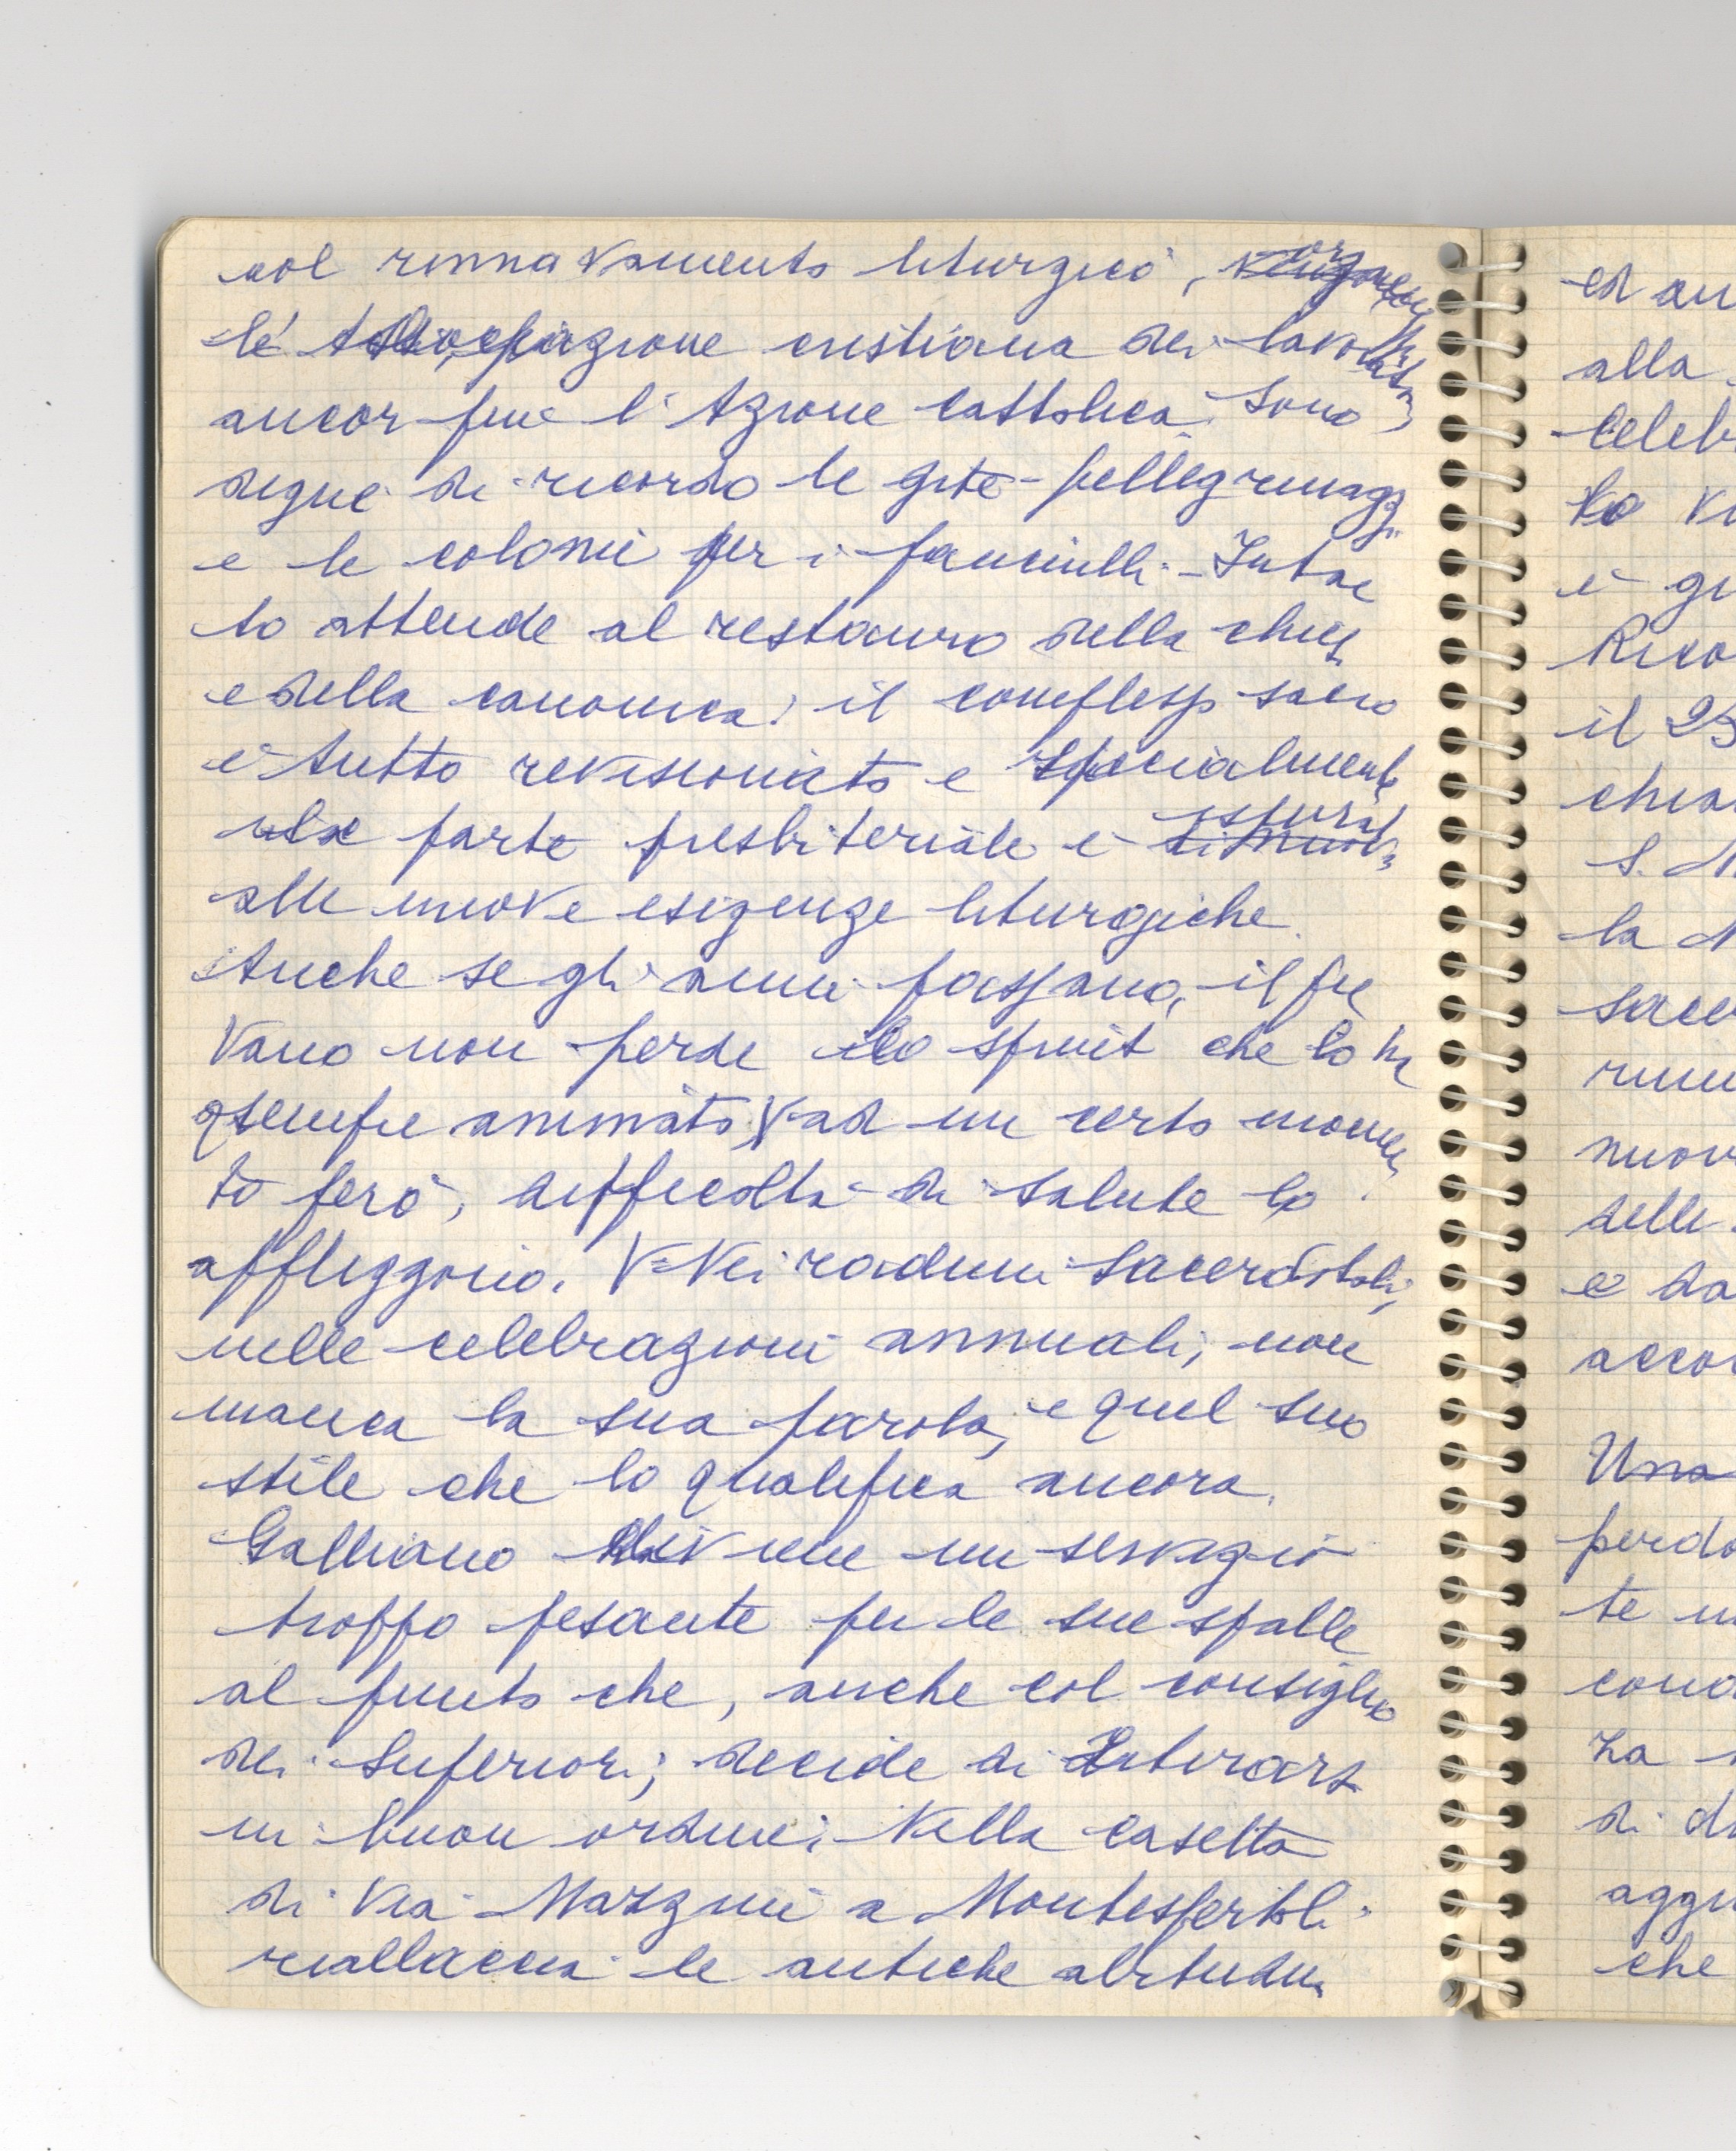 col rinnovamento liturgico,
l'Associazione cristiana dei lavoratori
ancor più l'Azione cattolica. Sono
degne di ricordo le gite-pellegrinaggi
e le colonie per i fanciulli. Intan
to attende al restauro della chiesa
e della canonica: il complesso sacro
è tutto revisionato e specialmente
la parte presbiteriale è
alle nuove esigenze liturgiche.
Anche se gli anni passano, il pie
vano non perde lo spirit che lo ha
sempre animato, ad un certo momen
to però, difficoltà di salute lo
affliggono. Nei raduni sacerdotali,
nelle celebrazioni annuali, non
manca la sua parola, e quel suo
stile che lo qualifica ancora.
Galliano divenne un servizio
troppo pesante per le sue spalle
al punto che, anche col consiglio
dei Superiori, decide di ritirarsi
in buon ordine. Nella casetta
di Via Mazzini a Montespertoli
riallaccia le antiche abitudini
ed an
alla
celeb
è gi
Rico
il 25
chia
S. M
la M
sace
nuov
delle
e da
accor
Una
perdo
te
cono
za
di di
aggi
che